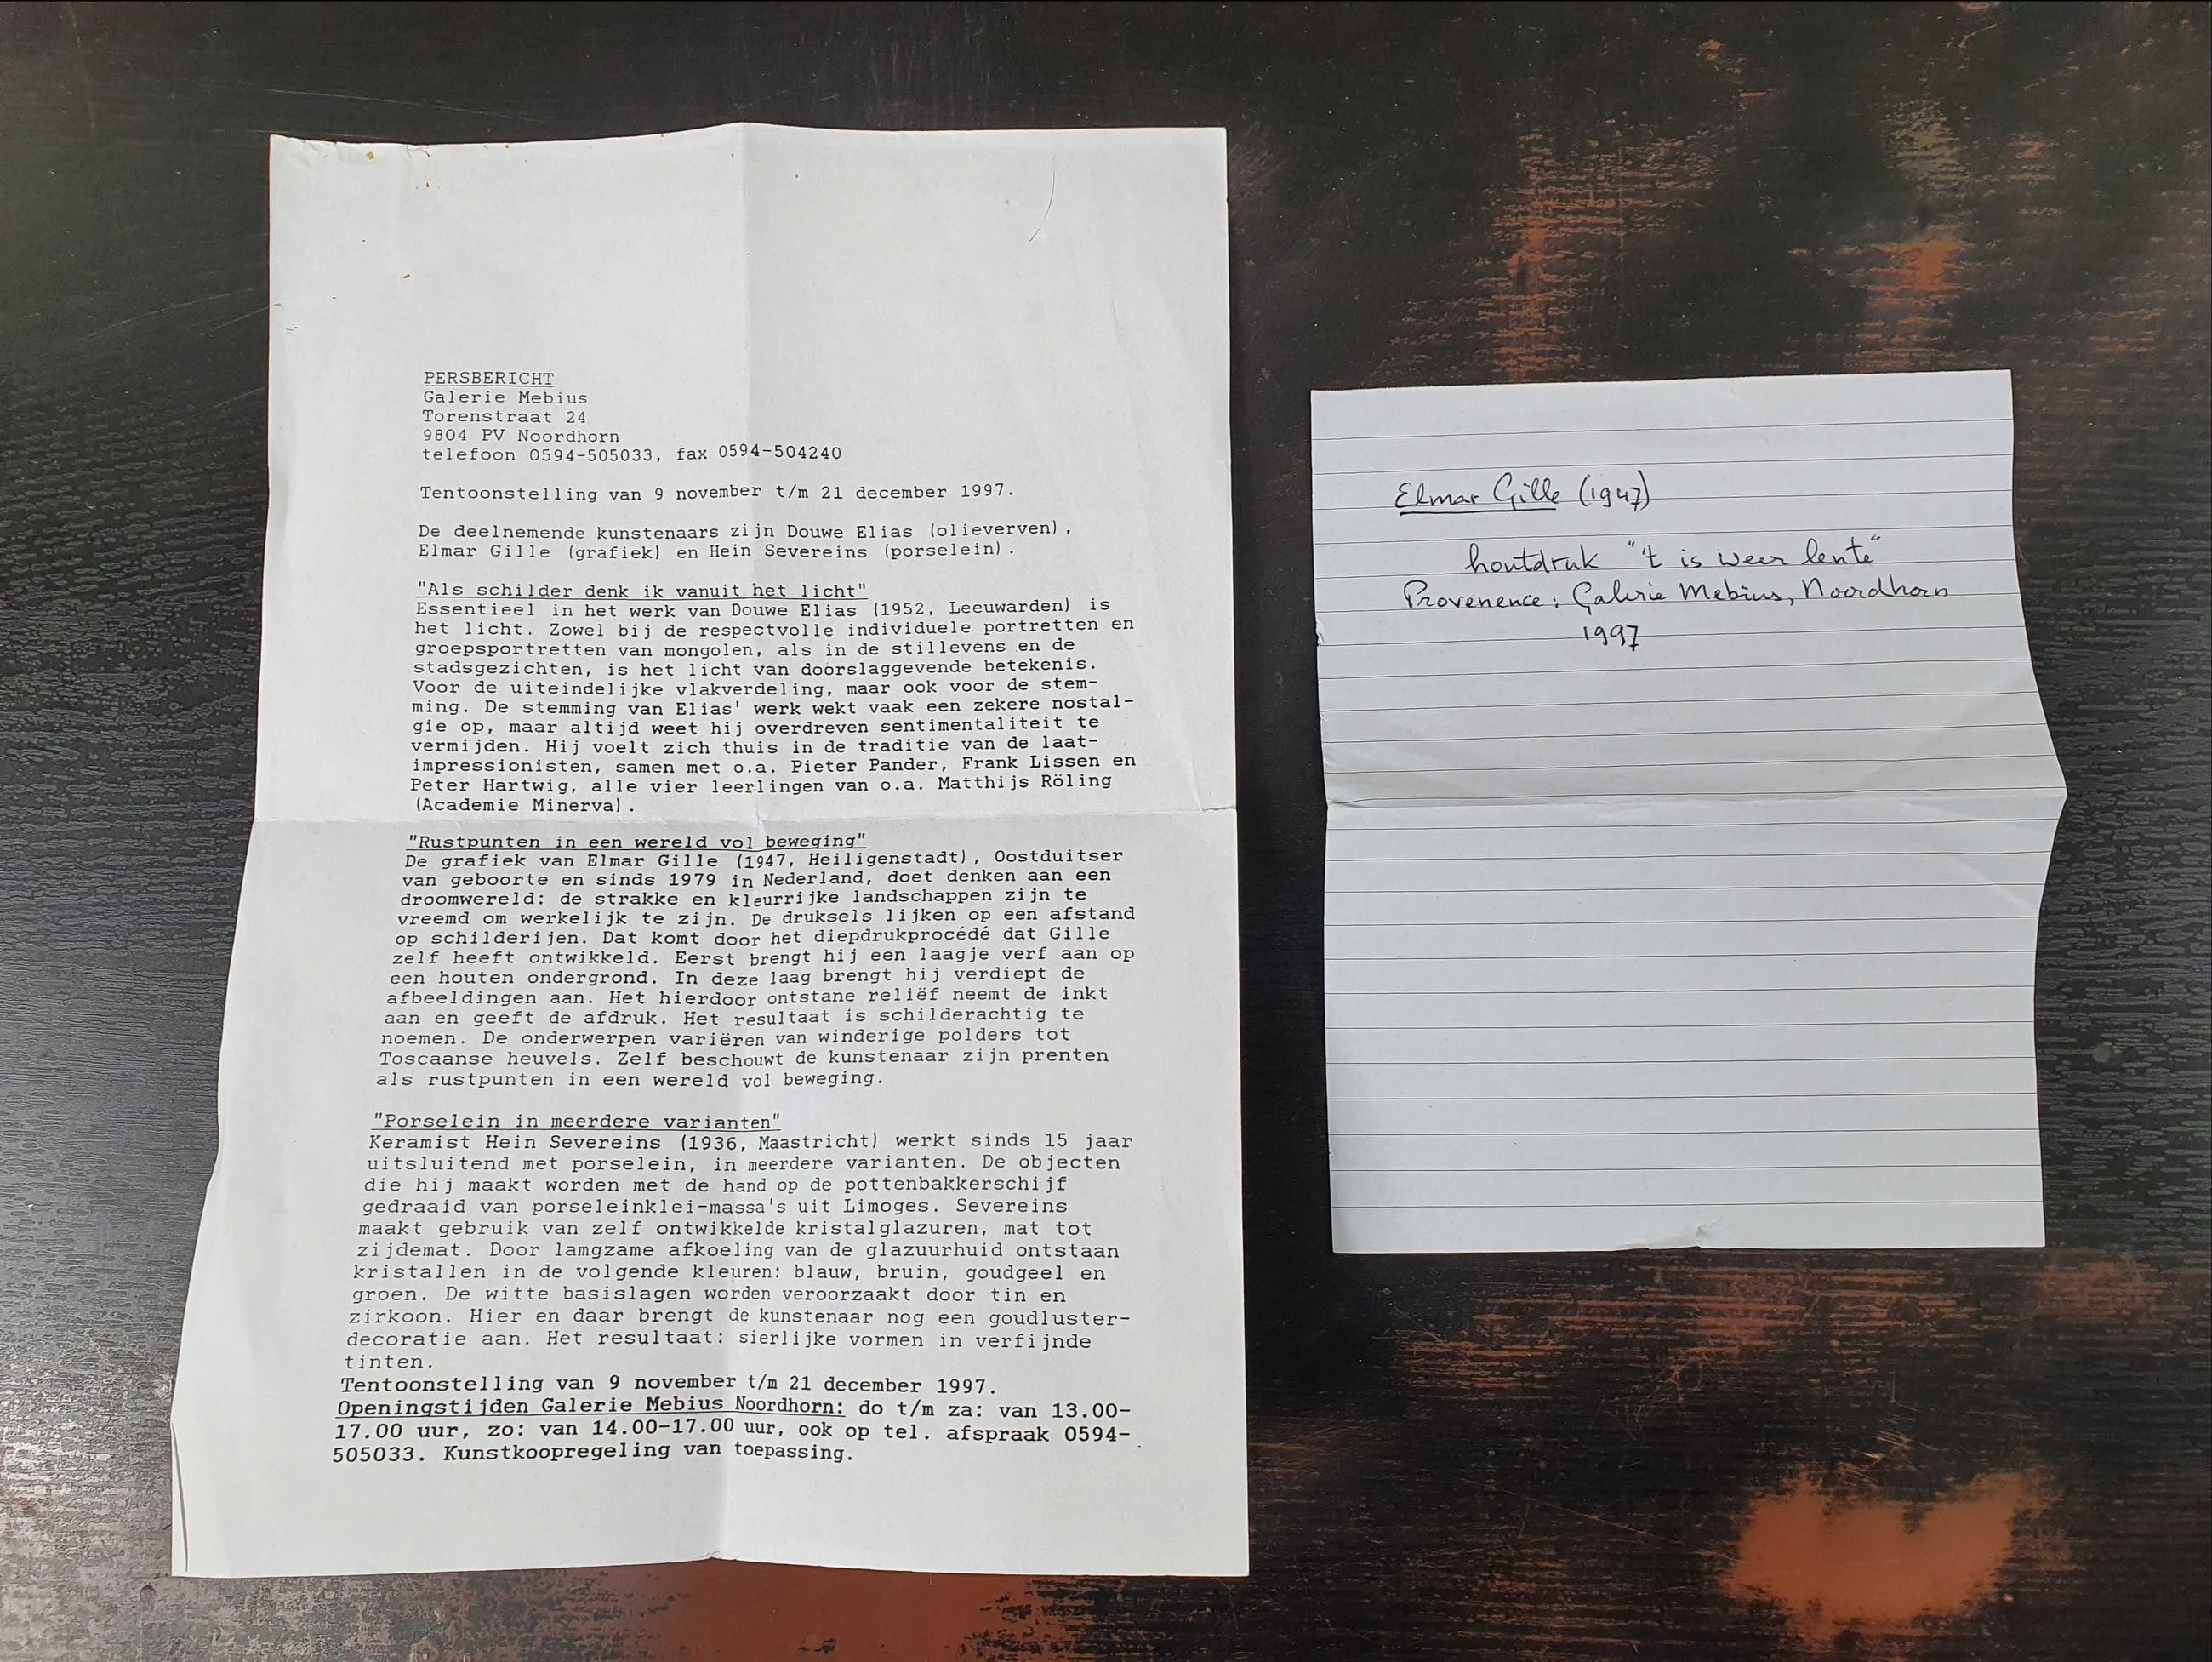 PERSBERICHT
Galerie Mebius
Torenstraat 24
9804 PV Noordhorn
telefoon 0594-505033, fax 0594-504240
Tentoonstelling van 9 november t/m 21 december 1997.
De deelnemende kunstenaars zijn Douwe Elias (olieverven),
Elmar Gille (grafiek) en Hein Severeins (porselein).
"Als schilder denk ik vanuit het licht"
Essentieel in het werk van Douwe Elias (1952, Leeuwarden) is
het licht. Zowel bij de respectvolle individuele portretten en
groepsportretten van mongolen, als in de stillevens en de
stadsgezichten, is het licht van doorslaggevende betekenis.
Voor de uiteindelijke vlakverdeling, maar ook voor de stem-
ming. De stemming van Elias' werk wekt vaak een zekere nostal-
gie op, maar altijd weet hij overdreven sentimentaliteit te
vermijden. Hij voelt zich thuis in de traditie van de laat-
impressionisten, samen met o.a. Pieter Pander, Frank Lissen en
Peter Hartwig, alle vier leerlingen van o.a. Matthijs Röling
(Academie Minerva).
"Rustpunten in een wereld vol beweging"
De grafiek van Elmar Gille (1947, Heiligenstadt), Oostduitser
van geboorte en sinds 1979 in Nederland, doet denken aan een
droomwereld: de strakke en kleurrijke landschappen zijn te
vreemd om werkelijk te zijn. De druksels lijken op een afstand
op schilderijen. Dat komt door het diepdrukprocédé dat Gille
zelf heeft ontwikkeld. Eerst brengt hij een laagje verf aan op
een houten ondergrond. In deze laag brengt hij verdiept de
afbeeldingen aan. Het hierdoor ontstane reliëf neemt de inkt
aan en geeft de afdruk. Het resultaat is schilderachtig te
noemen. De onderwerpen variëren van winderige polders tot
Toscaanse heuvels. Zelf beschouwt de kunstenaar zijn prenten
als rustpunten in een wereld vol beweging.
"Porselein in meerdere varianten"
Keramist Hein Severeins (1936, Maastricht) werkt sinds 15 jaar
uitsluitend met porselein, in meerdere varianten. De objecten
die hij maakt worden met de hand op de pottenbakkerschijf
gedraaid van porseleinklei-massa's uit Limoges. Severeins
maakt gebruik van zelf ontwikkelde kristalglazuren, mat tot
zijdemat. Door lamgzame afkoeling van de glazuurhuid ontstaan
kristallen in de volgende kleuren: blauw, bruin, goudgeel en
groen. De witte basislagen worden veroorzaakt door tin en
zirkoon. Hier en daar brengt de kunstenaar nog een goudluster-
decoratie aan. Het resultaat: sierlijke vormen in verfijnde
tinten.
Tentoonstelling van 9 november t/m 21 december 1997.
Openingstijden Galerie Mebius Noordhorn: do t/m za: van 13.00-
17.00 uur, zo: van 14.00-17.00 uur, ook op tel. afspraak 0594-
505033. Kunstkoopregeling van toepassing.
Elmar Gille (1947)
houtdruk "'t is weer lente"
Provenence: Galerie Mebius, Noordhorn
1997